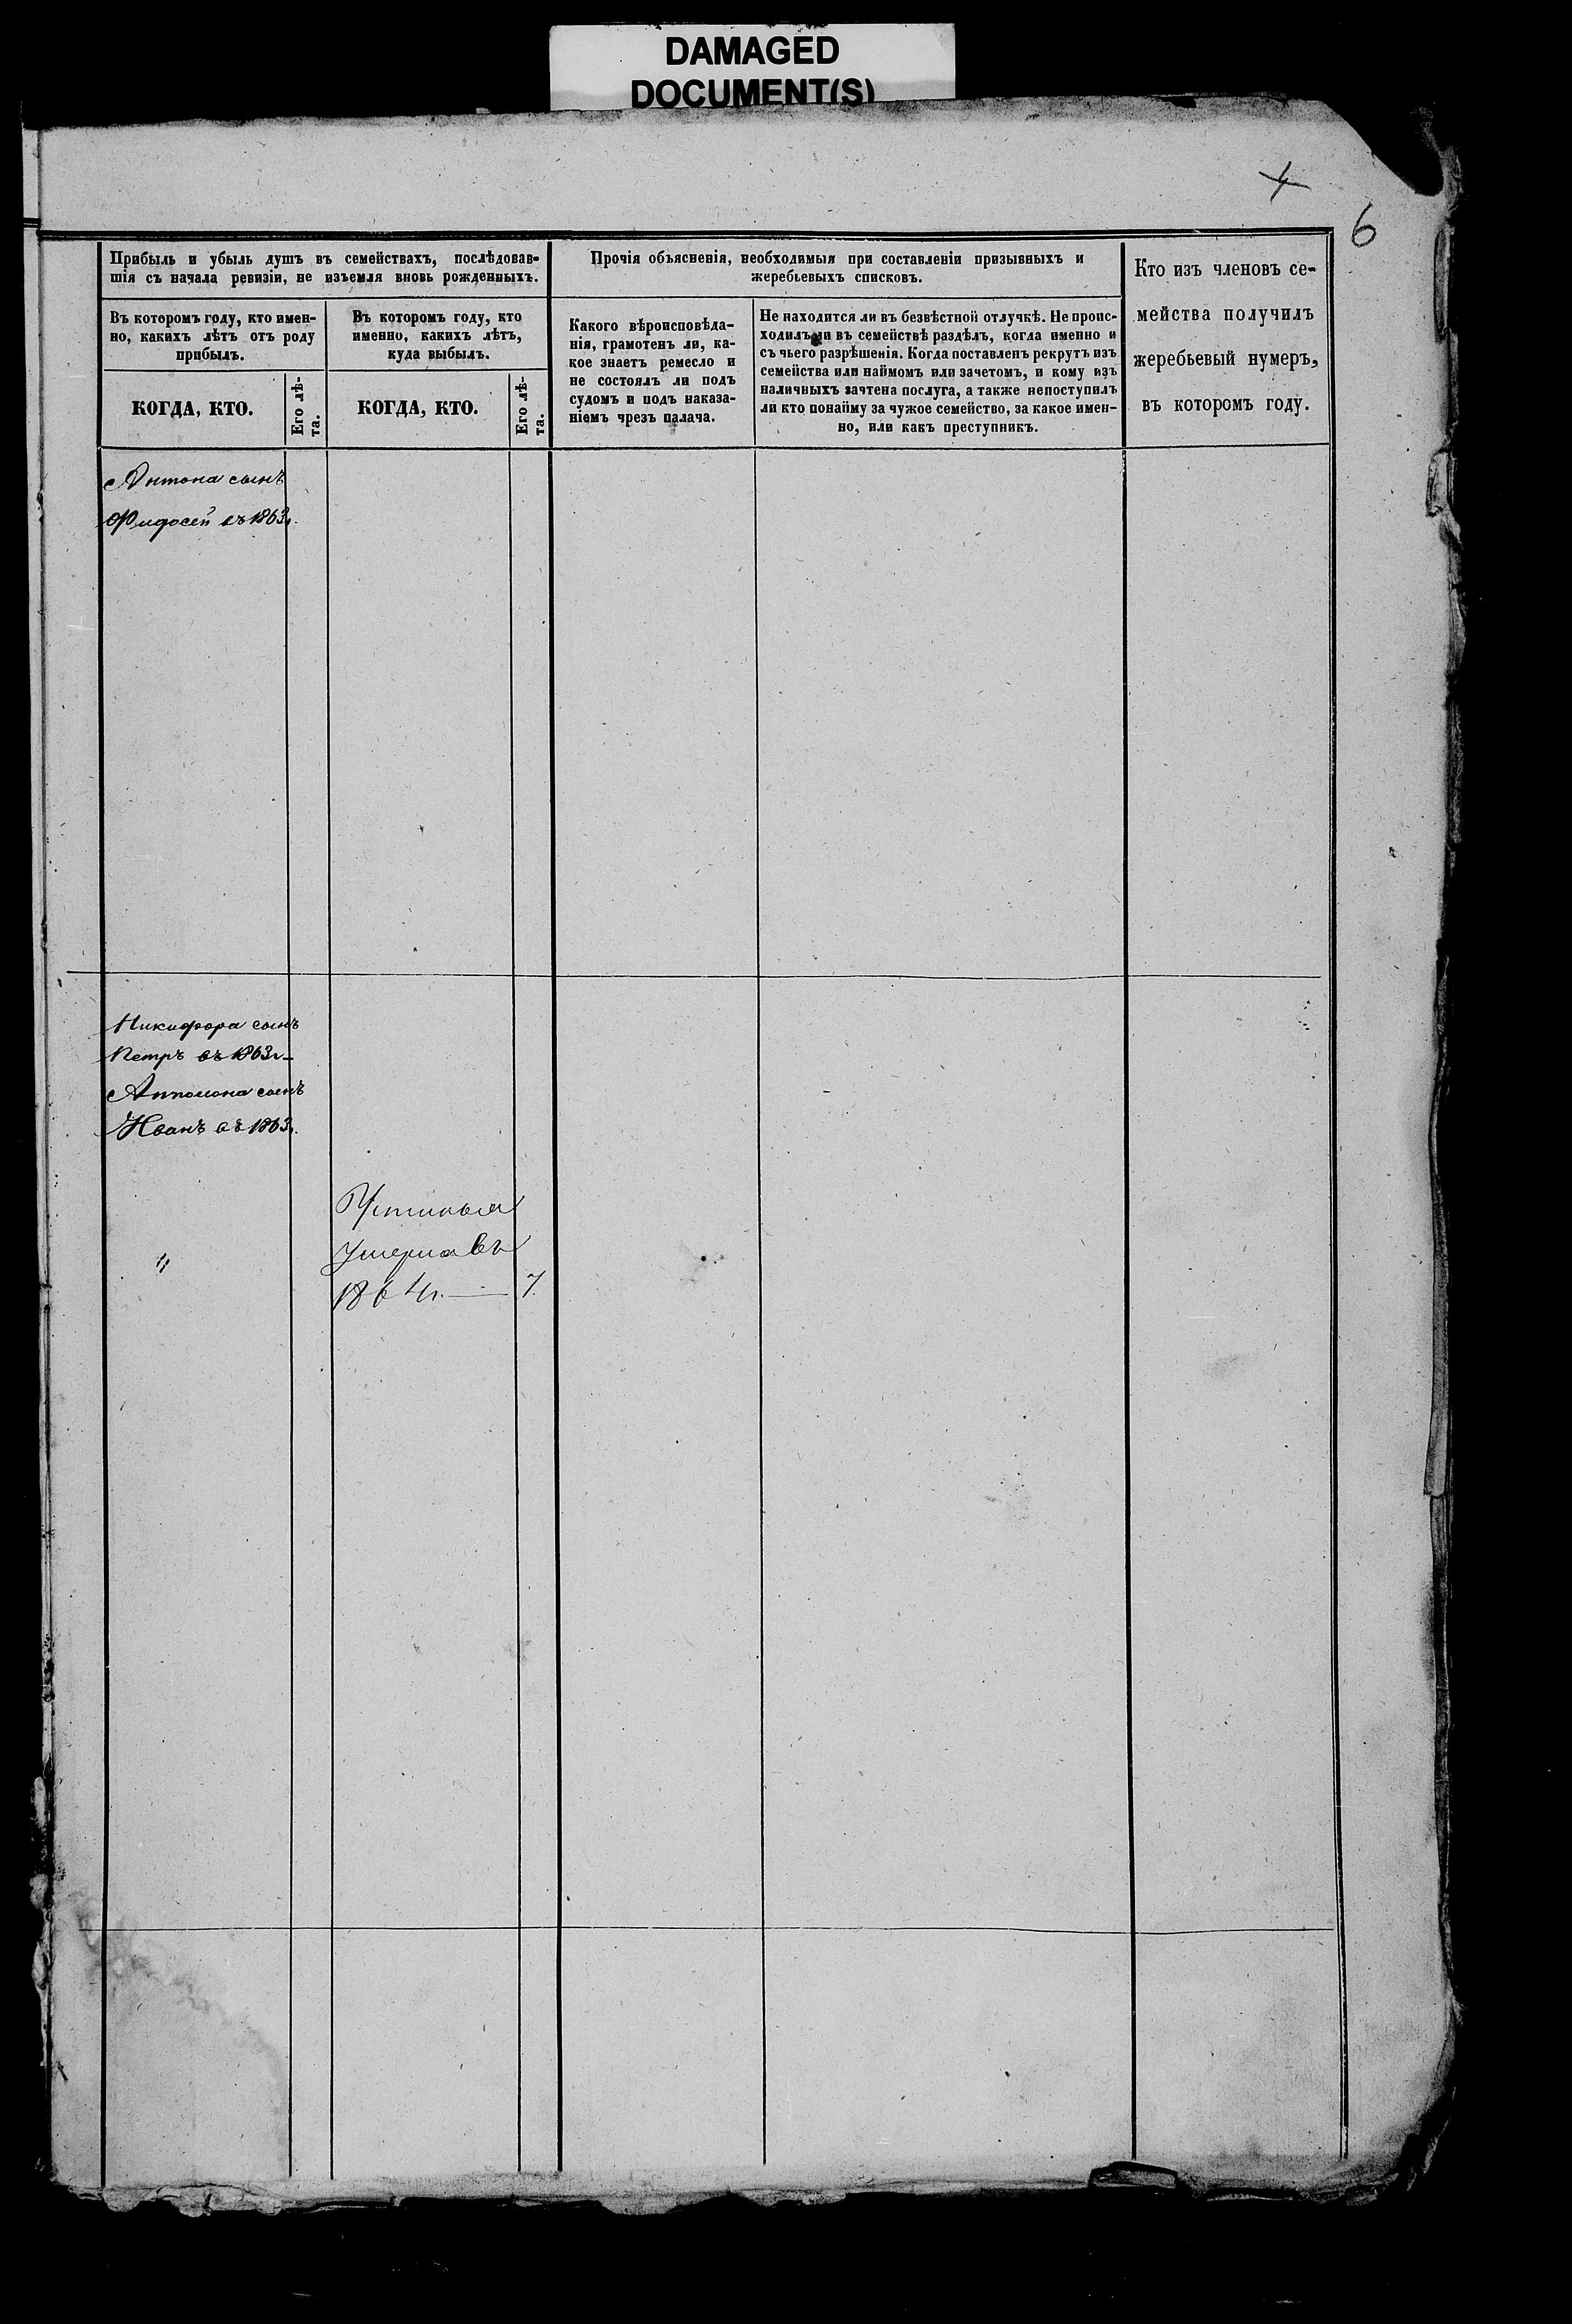 DAMAGED
DOCUMENT(S)
6
Прибыль и убыль душъ въ семействахъ, послѣдовав-
шія съ начала ревизіи, не изъемля вновь рожденныхъ.
Въ которомъ году, кто имен-
но, какихъ лѣтъ отъ роду
прибылъ.
КОГДА, КТО.
Его лѣ-
та.
Въ которомъ году, кто
именно, какихъ лѣтъ,
куда выбылъ.
КОГДА, КТО.
Его лѣ-
та.
Прочія объясненія, необходимыя при составленіи призывныхъ и
жеребьевыхъ списковъ.
Какого вѣроисповѣда-
нія, грамотенъ ли, ка-
кое знаетъ ремесло и
не состоялъ ли подъ
судомъ и подъ наказа-
ніемъ чрезъ палача.
Не находится ли въ безвѣстной отлучкѣ. Не проис-
ходилъ ли въ семействѣ раздѣлъ, когда именно и
съ чьего разрѣшенія. Когда поставленъ рекрутъ изъ
семейства или наймомъ или зачетомъ, и кому изъ
наличныхъ зачтена послуга, а также непоступилъ
ли кто понайму за чужое семейство, за какое имен-
но, или какъ преступникъ.
Кто изъ членовъ се-
мейства получилъ
жеребьевый нумеръ,
въ которомъ году.
Антона сынъ
Фидосей въ 1863г.
Никифора сынъ
Петръ въ 1863г.
сынъ
Иванъ въ 1863г.
"
Устинья
умерла въ
1864г. — 7.